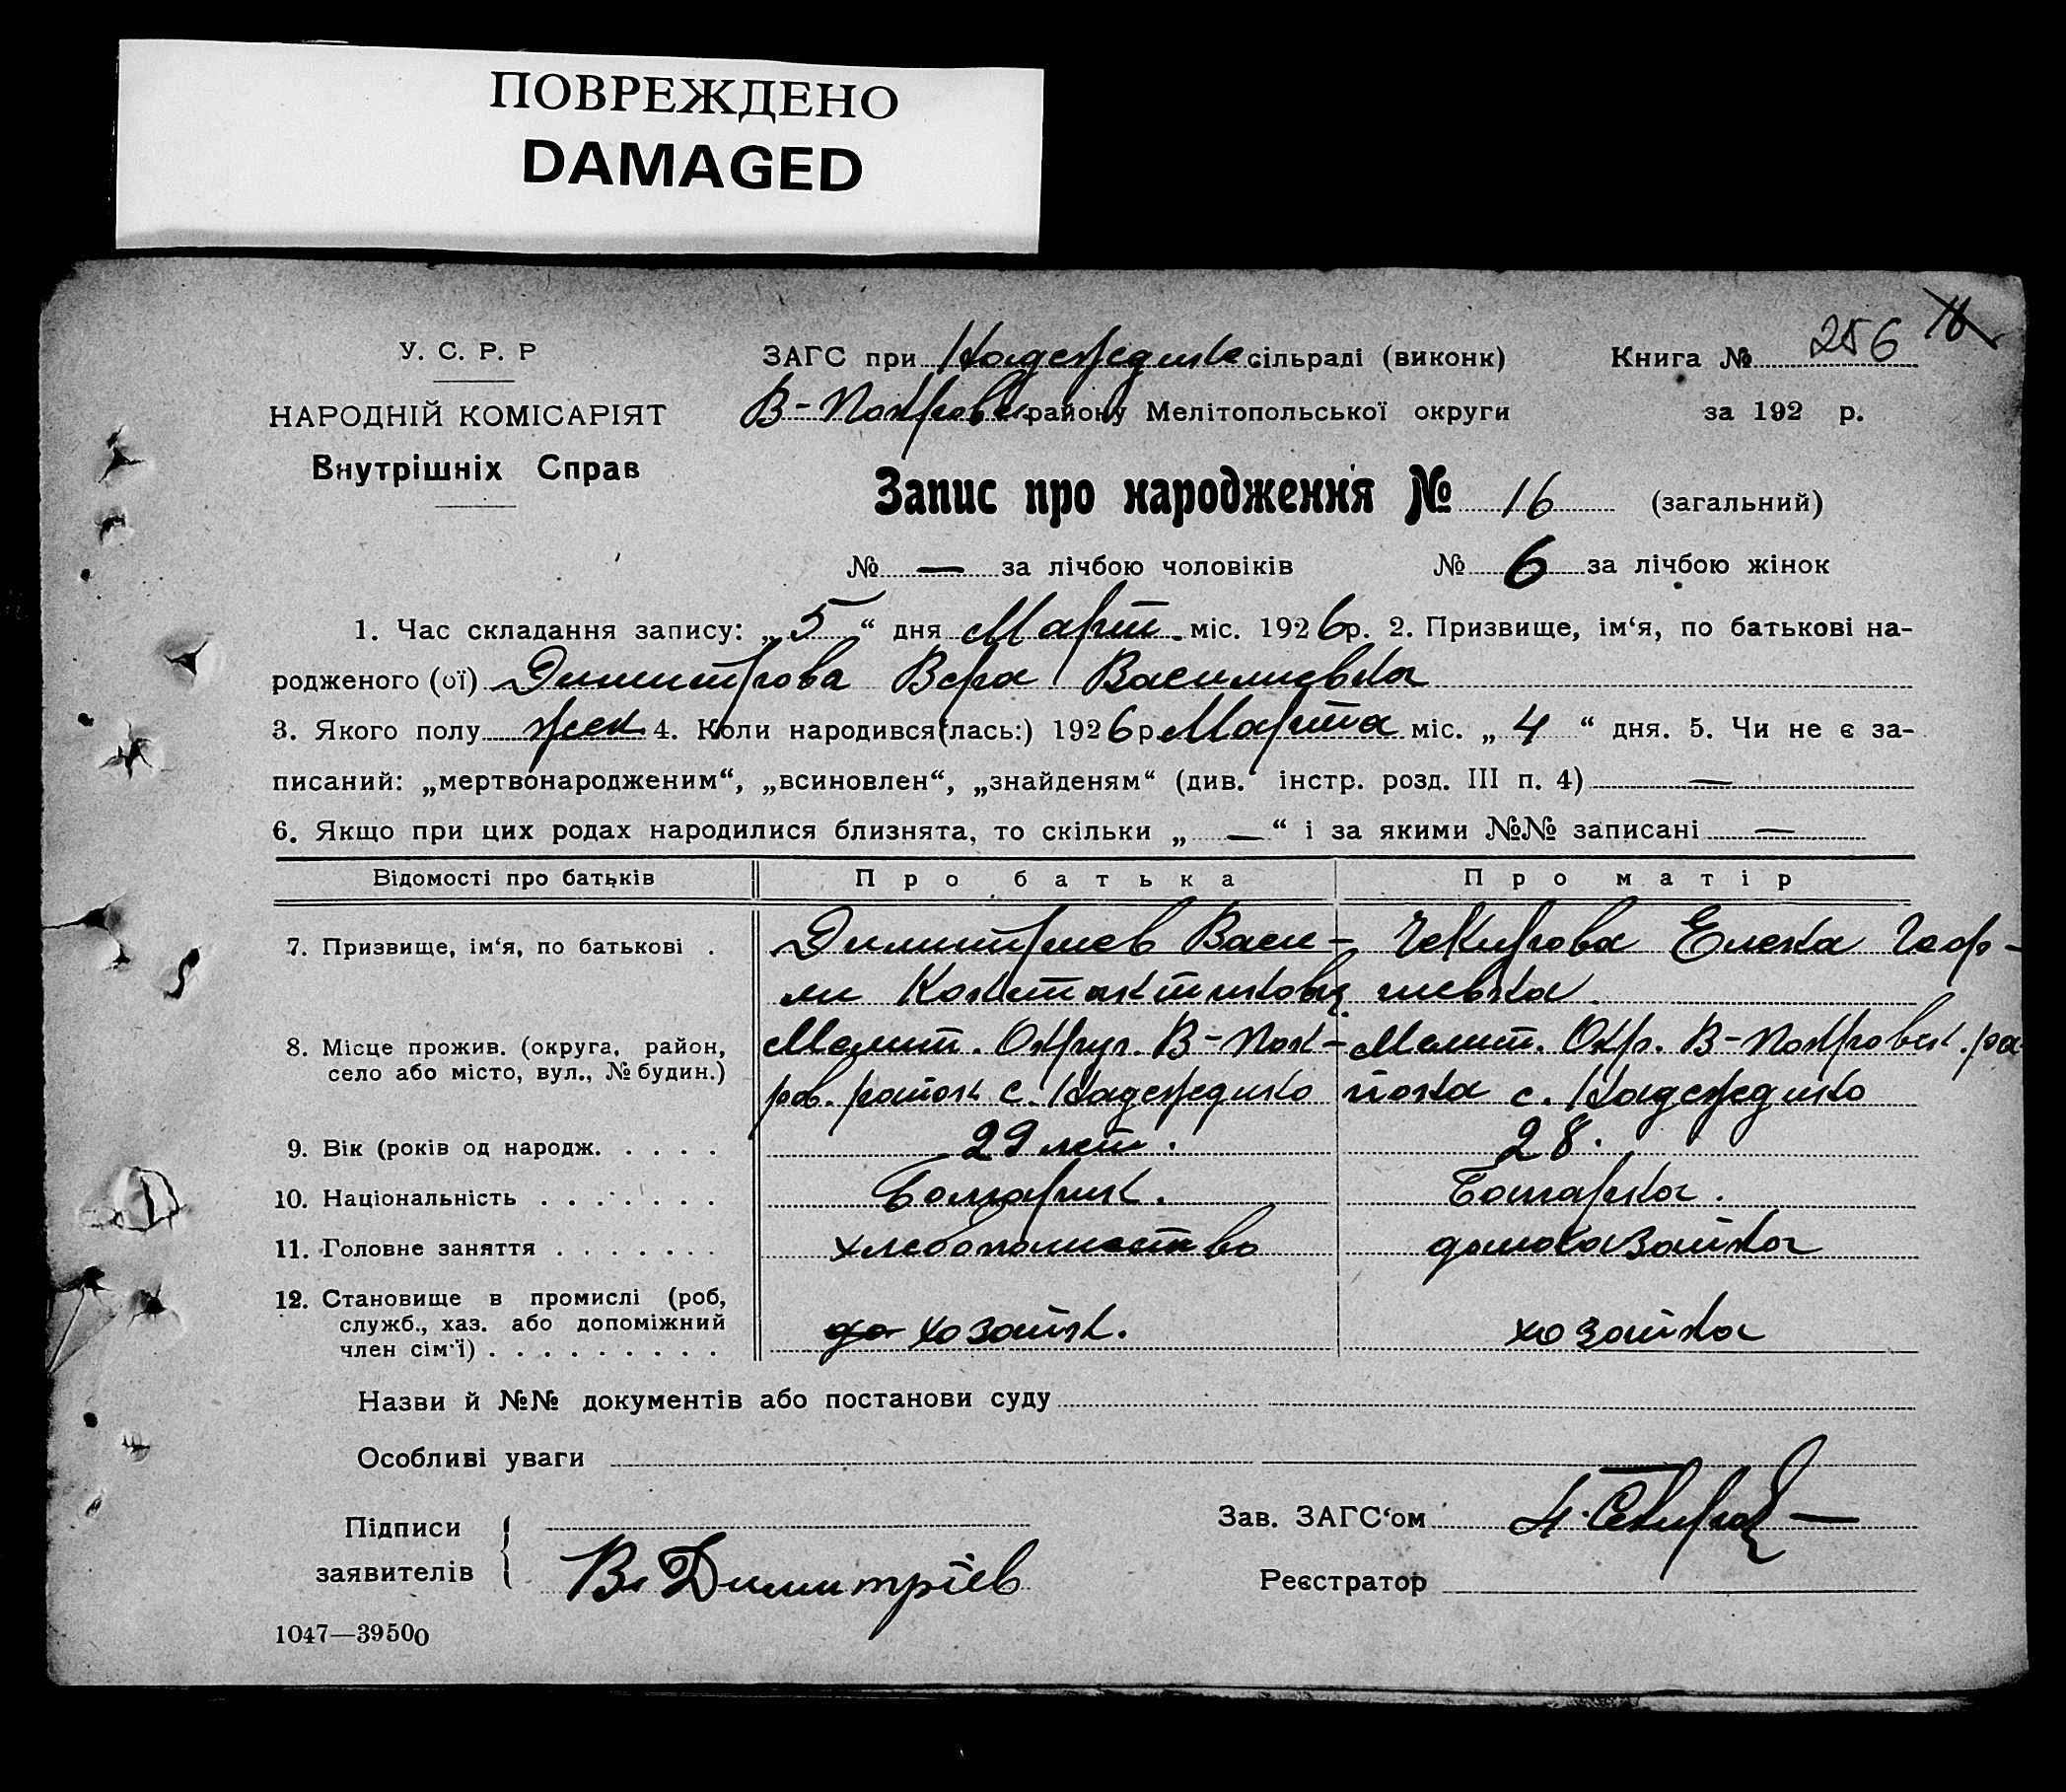 ПОВРЕЖДЕНО
DAMAGED
256
У. С. Р. Р
ЗАГС при Надеждинск сільраді (виконк) Книга №
НАРОДНІЙ КОМІСАРІЯТ
В-Покров. району Мелітопольської округи за 192 р.
Внутрішніх Справ
Запис про народження № 16 (загальний)
№ — за лічбою чоловіків № 6 за лічбою жінок
1. Час складання запису: „5“ дня Март. міс. 1926 р. 2. Призвище, ім‘я, по батькові на-
родженого (ої) Димитрова Вера Василиевна
3. Якого полу жен 4. Коли народився(лась:) 1926 р Марта міс. „4“ дня. 5. Чи не є за-
писаний: „мертвонародженим“, „всиновлен“, „знайденям“ (див. інстр. розд. III п. 4) —
6. Якщо при цих родах народилися близнята, то скільки „—“ і за якими №№ записані —
Відомості про батьків Про батька Про матір
7. Призвище, ім‘я, по батькові . Димитриев Васи- Чекирова Елена Геор-
ли Константинович гиевна.
8. Місце прожив. (округа, район, Мелит. Округ. В-Пок- Мелит. Окр. В-Покровск. ра
село або місто, вул., № будин.) ров. район с. Надеждино йона с. Надеждино
9. Вік (років од народж. . . . . 29 лет. 28.
10. Національність . . . . . . . Болгарин. Болгарка.
11. Головне заняття . . . . . . . хлебопашество домохозайка
12. Становище в промислі (роб,
служб., хаз. або допоміжний до хозаин. хозайка
член сім‘ї) . . . . . . . . .
Назви й №№ документів або постанови суду
Особливі уваги
Підписи Зав. ЗАГС‘ом
заявителів Вс Димитріев Реєстратор
1047—39500